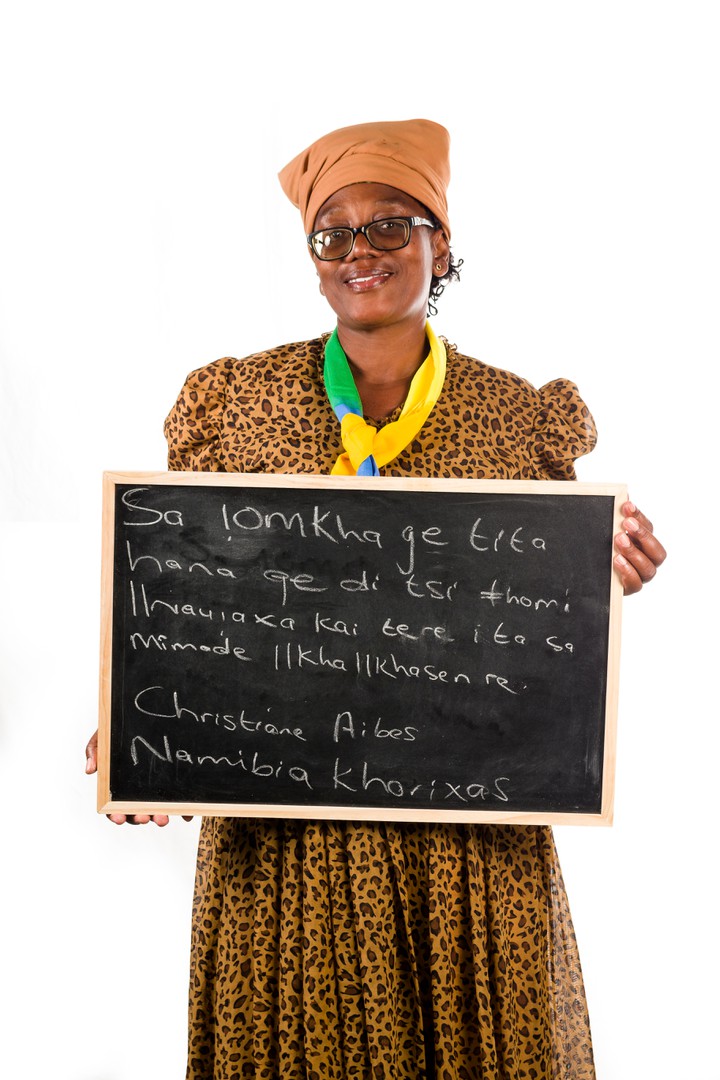 Sa !omkha ge tita
hana ge di tsi ǂhomi
kai tere i ta sa
Mimade ||kha||khasen re.
Christiane Aibes
Namibia Khorixas